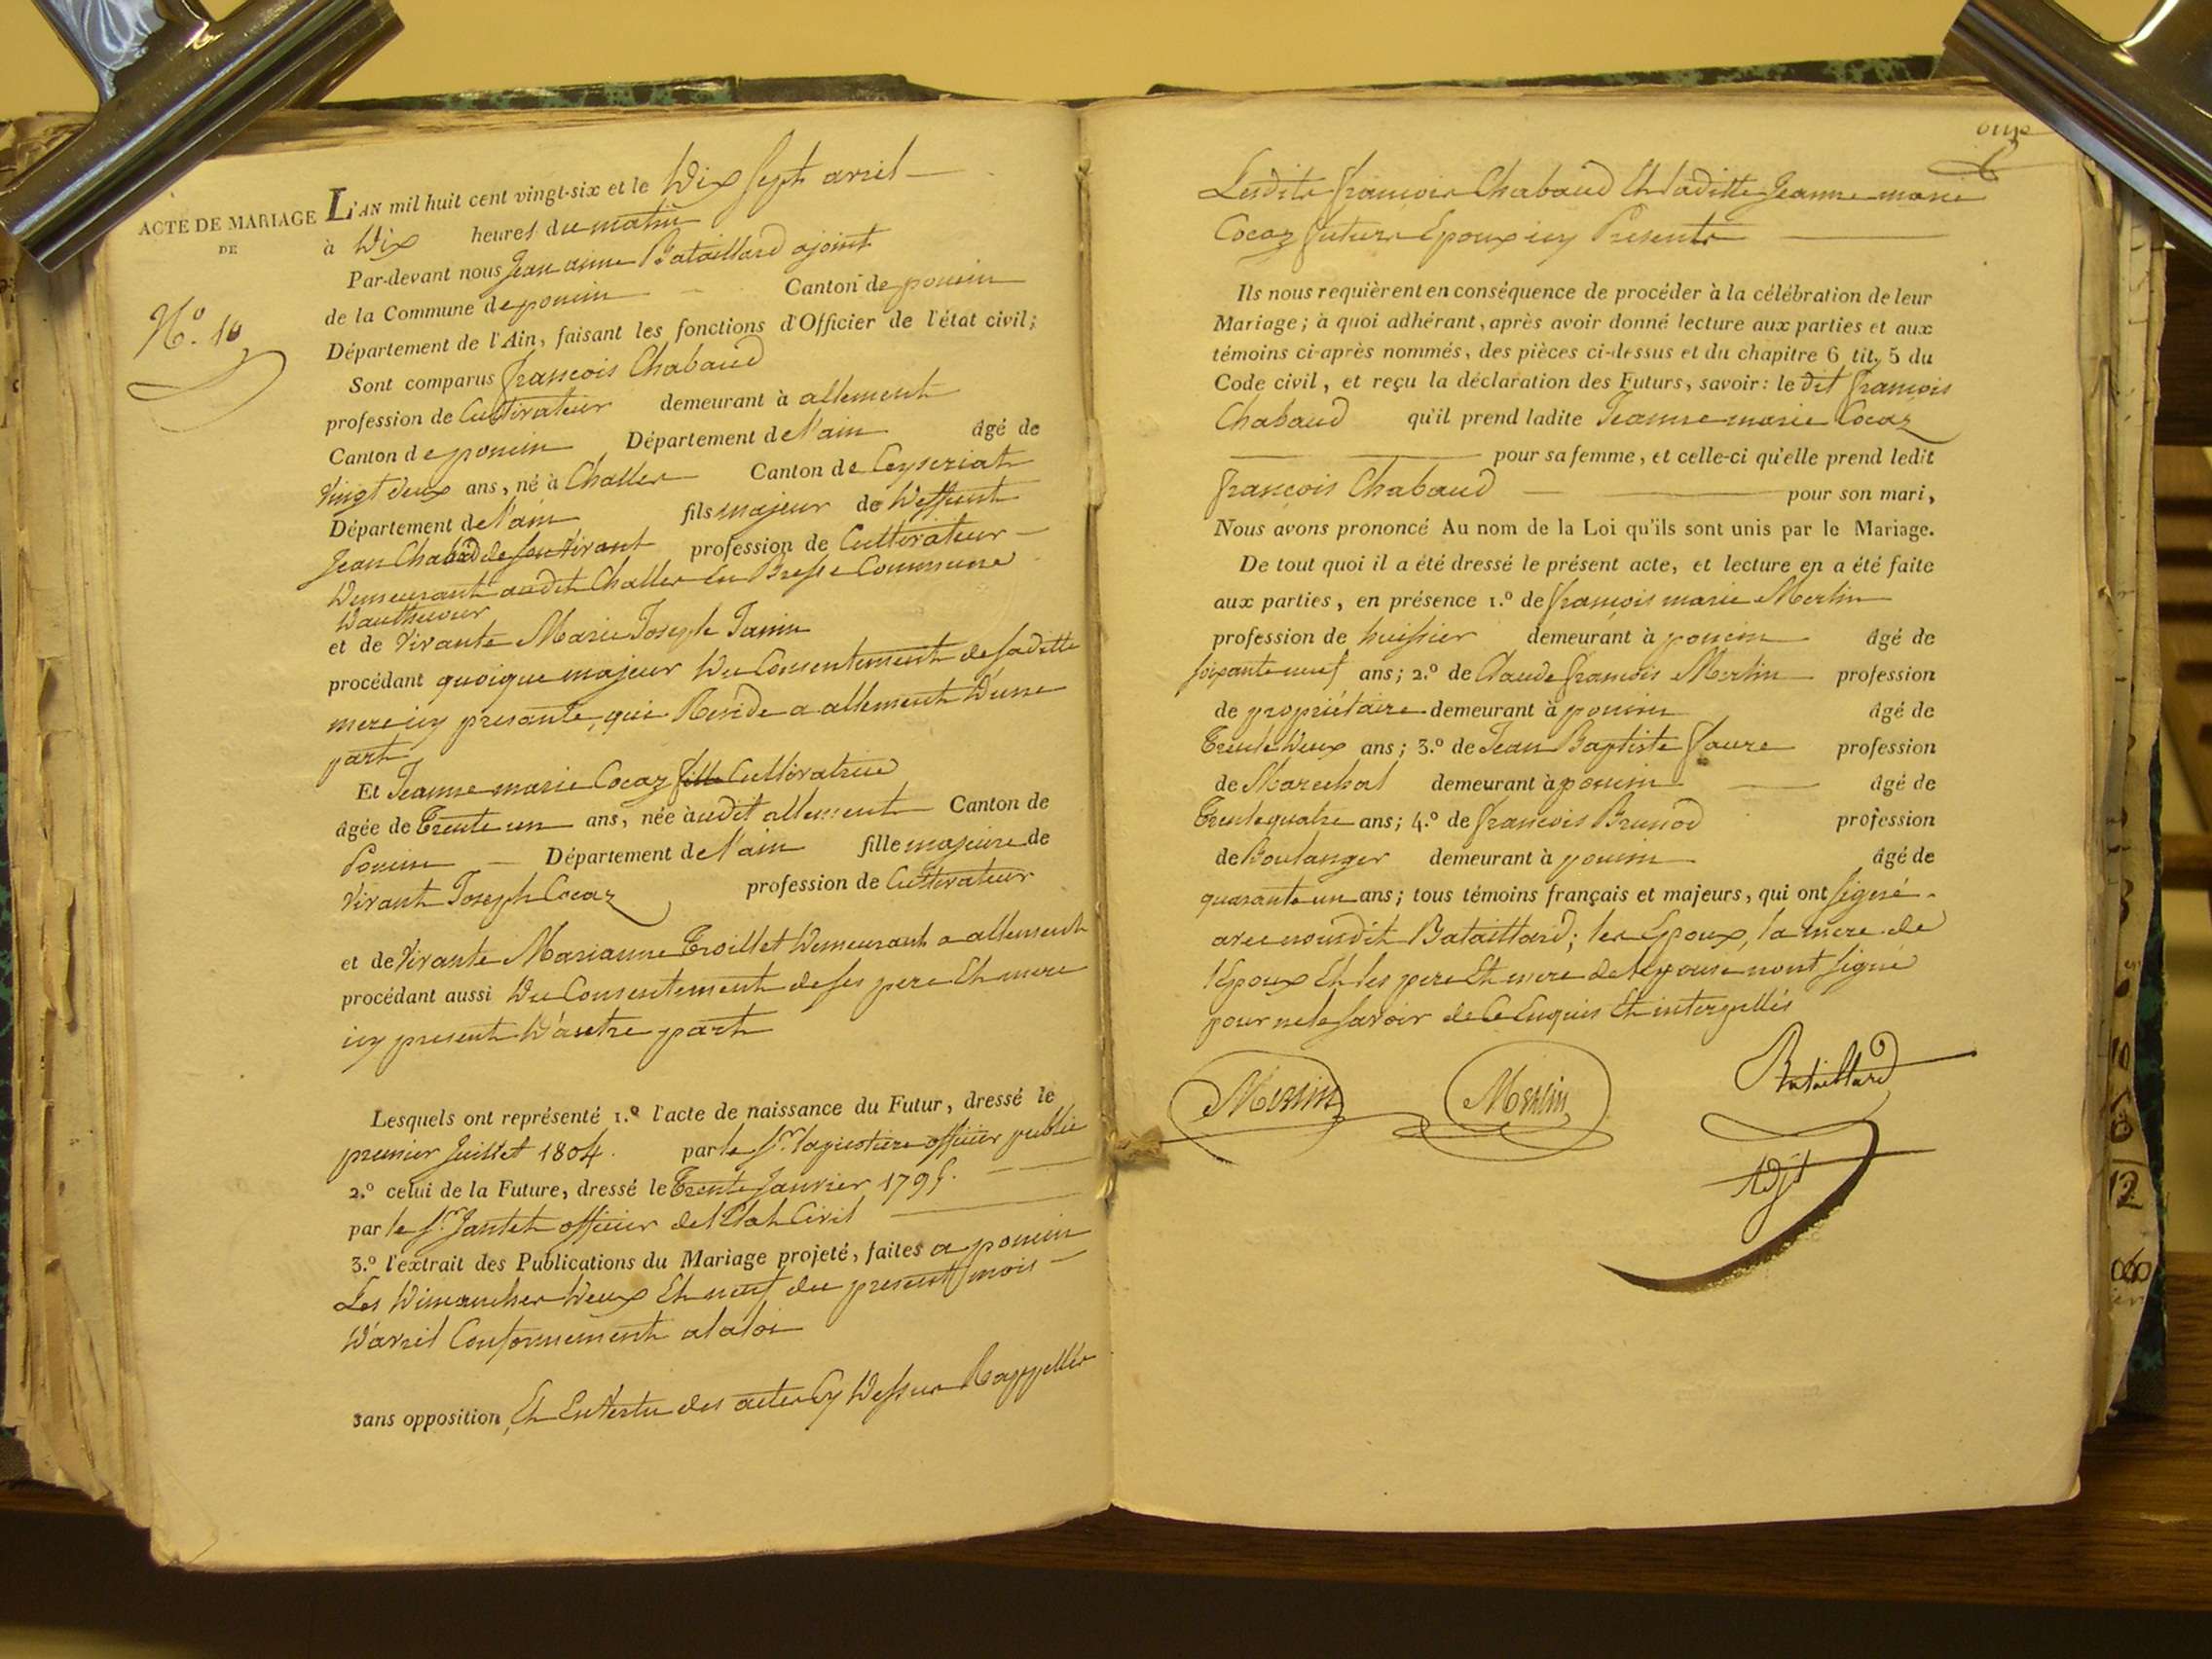 ACTE DE MARIAGE
DE
N.º 10
L'AN mil huit cent vingt-six et le Dix Sept avril
à Dix heures du matin
Par-devant nous Jean aimé Bataillard ajoint
de la Commune de poncin Canton de poncin
Département de l'Ain, faisant les fonctions d'Officier de l'état civil;
Sont comparus françois Chabaud
profession de Cultivateur demeurant à allement
Canton de poncin Département de l'ain âgé de
vingt deux ans, né à Challes Canton de Ceyseriat
Département de l'ain fils majeur de Deffunt
Jean Chabaud de son vivant profession de Cultivateur
Demeurant audit Challes En Bresse Commune
et de vivante Marie Joseph Janin
procédant quoique majeur Du Consentement de saditte
mere icy presante, qui Reside a allement D'une
part
Et Jeanne marie Cocaz fille Cultivatrice
âgée de Trente un ans, née àudit allement Canton de
Poncin Département de l'ain fille majeure de
vivant Joseph Cocaz profession de Cultivateur
et de vivante Marianne Troillet Demeurant a allement
procédant aussi Du Consentement de ses pere Et mere
icy present D'autre part
Lesquels ont représenté 1.º l'acte de naissance du Futur, dressé le
premier Juillet 1804. par le Sr. officier public
2.º celui de la Future, dressé le Trente Janvier 1795.
par le Sr. Jantet officier de l'Etat Civil
3.º l'extrait des Publications du Mariage projeté, faites a poncin
Les Dimanches Deux Et neuf du present mois
D'avril Conformement a la loi
sans opposition, Et En Vertu des actes Cy Dessus Rappellés
onze
Lesdits françois Chabaud Et laditte Jeanne marie
Cocaz futurs Epoux icy Presents
Ils nous requièrent en conséquence de procéder à la célébration de leur
Mariage; à quoi adhérant, après avoir donné lecture aux parties et aux
témoins ci-après nommés, des pièces ci-dessus et du chapitre 6 tit. 5 du
Code civil, et reçu la déclaration des Futurs, savoir: le dit françois
Chabaud qu'il prend ladite Jeanne marie Cocaz
pour sa femme, et celle-ci qu'elle prend ledit
françois Chabaud pour son mari,
Nous avons prononcé Au nom de la Loi qu'ils sont unis par le Mariage.
De tout quoi il a été dressé le présent acte, et lecture en a été faite
aux parties, en présence 1.º de françois marie Merlin
profession de huissier demeurant à poncin âgé de
soixante neuf ans; 2.º de Claude françois Merlin profession
de propriétaire demeurant à poncin âgé de
Trente Deux ans; 3.º de Jean Baptiste faure profession
de Marechal demeurant à poncin âgé de
Trente quatre ans; 4.º de françois Brunod profession
de Boulanger demeurant à poncin âgé de
quarante un ans; tous témoins français et majeurs, qui ont signé
avec nousdit Bataillard; les Epoux, la mere de
l'Epoux Et les pere Et mere de l'epouse nont signé
pour ne le savoir de Ce Enquis Et interpellés
Merlin Merlin Bataillard
Adjt